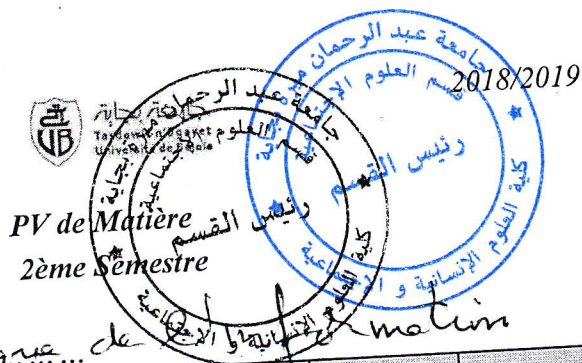 2018/2019
جامعة بجاية
Tasdawit n Bgayet
Université de Béjaïa
جامعة عبد الرحمان ميرة بجاية
قسم العلوم الإجتماعية
رئيس القسم
كلية العلوم الإنسانية و الإجتماعية
جامعة عبد الرحمان ميرة بجاية
قسم العلوم الإجتماعية
رئيس القسم
كلية العلوم الإنسانية و الإجتماعية
PV de Matière
2ème Semestre
de